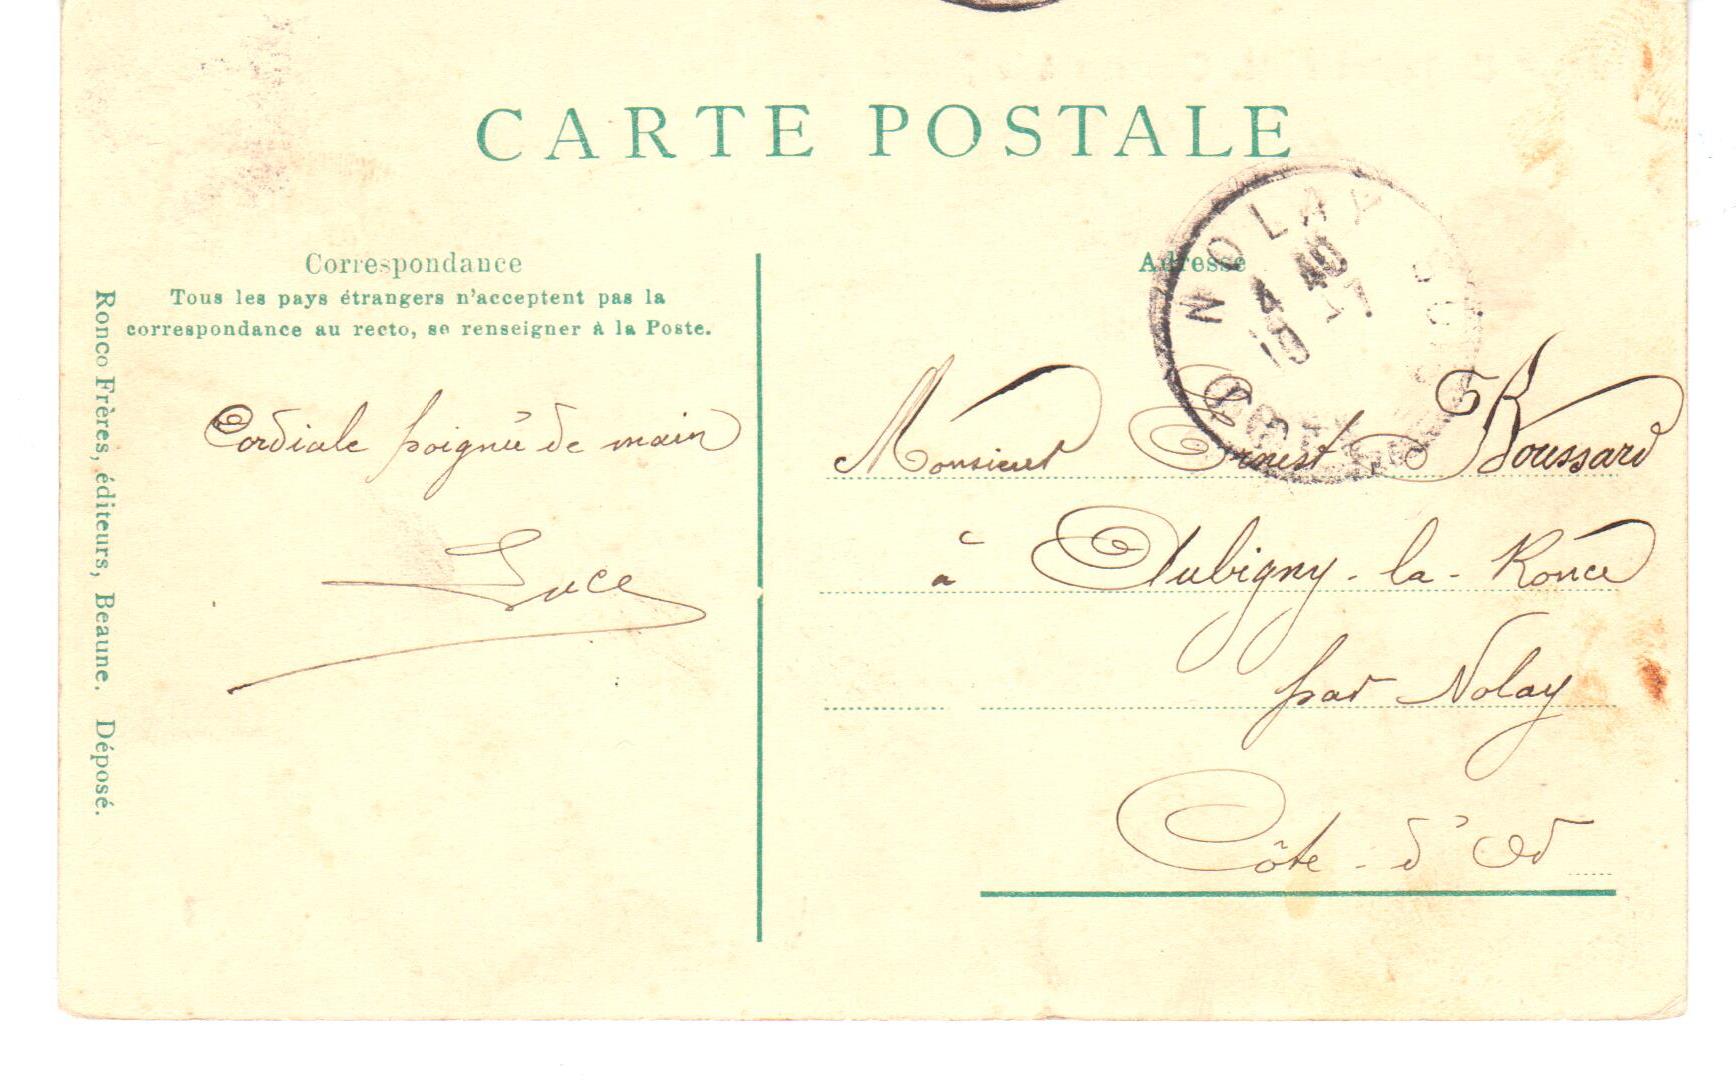 CARTE POSTALE
Correspondance
Tous les pays étrangers n'acceptent pas la
correspondance au recto, se renseigner à la Poste.
Ronco Frères, éditeurs, Beaune. Déposé.
Cordiale poignée de main
Luce
Adresse
NOLAY
4 40
19
Monsieur Ernest Boussard
à Aubigny-la-Ronce
par Nolay
Côte-d'Or